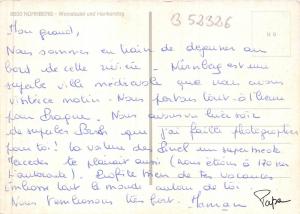 8500 NÜRNBERG - Weinstadel und Henkersteg
B 52326
Mon grand,
Nous sommes en train de déjeuner au
bord de cette rivière. Nürnberg est une
superbe ville médiévale que nous avons
visitée ce matin. Nous partons tout à l'heure
pour Prague. Nous avons vu hier soir
de superbes Porsch que j'ai failli photographier
pour toi! la voiture des une super
Mercedes te plairait aussi (nous étions à 170 sur
l'autoroute). Profite bien de tes vacances
Embrasse tout le monde autour de toi.
Nous t'embrassons très fort. Maman Papa